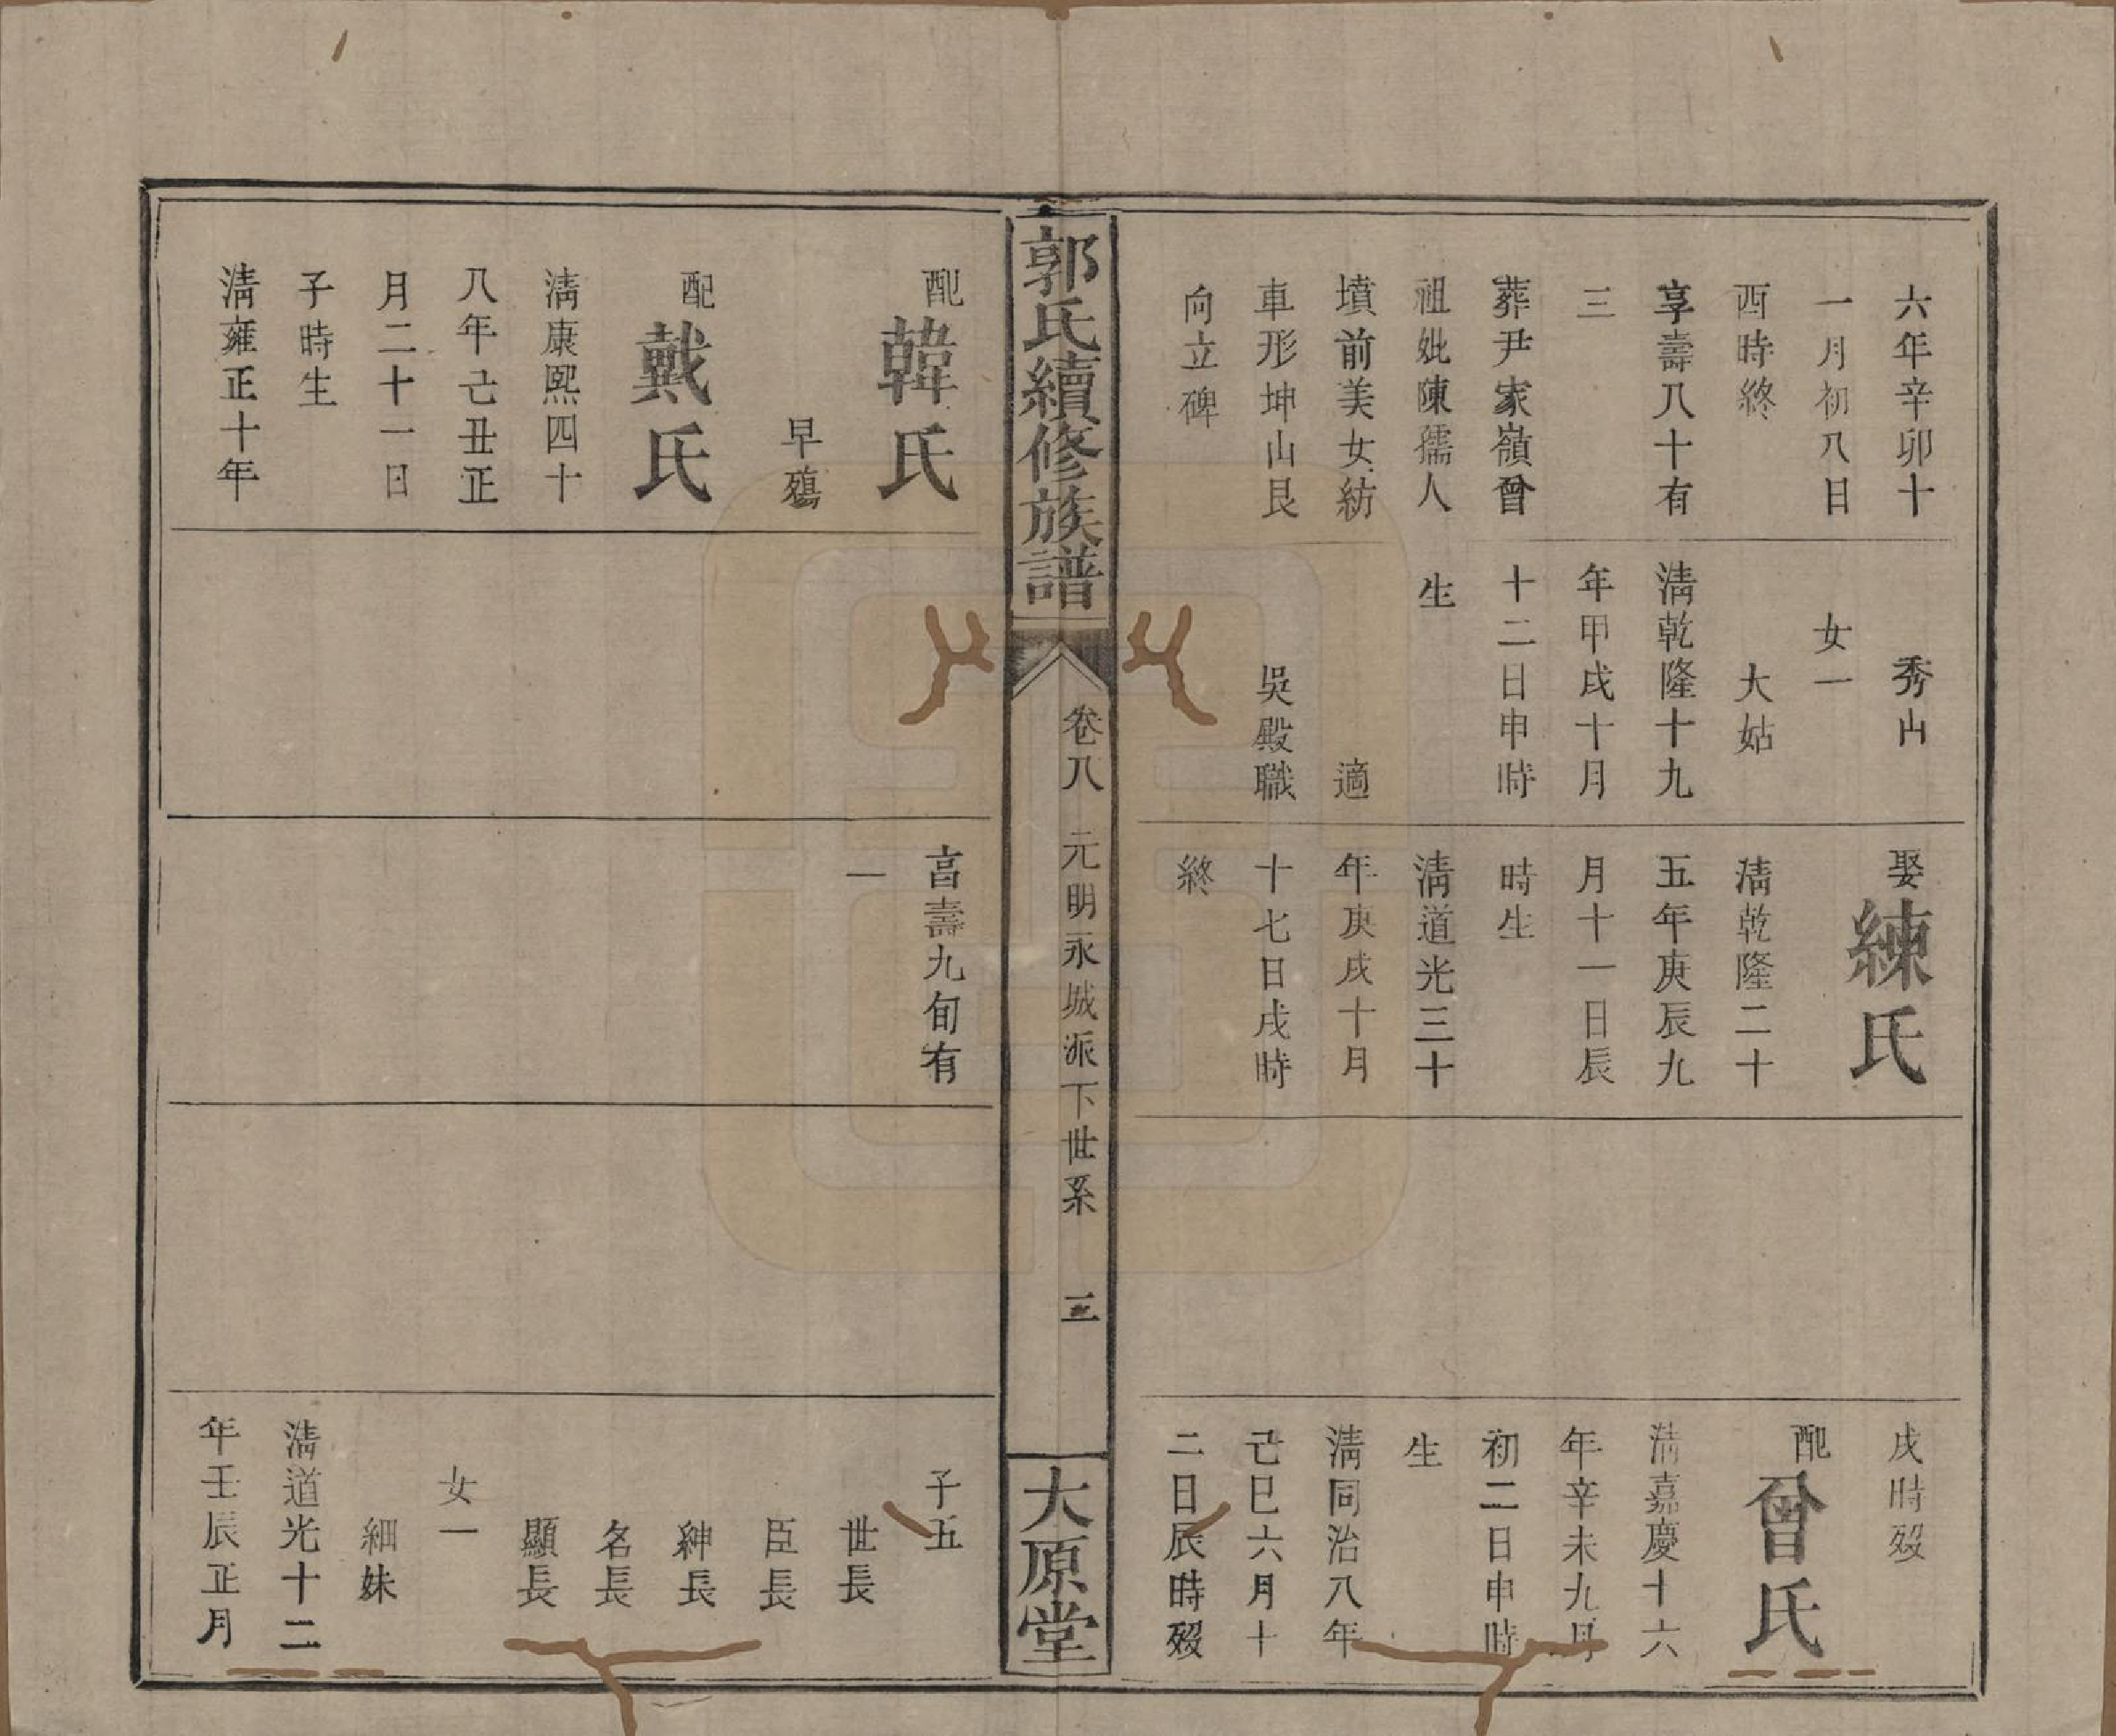 六年辛卯十
一月初八日
酉時終
享壽八十有
三
葬尹家嶺曾
祖妣陳孺人
墳前美女紡
車形坤山艮
向立碑
秀山
女一
大姑
清乾隆十九
年甲戌十月
十二日申時
生
適
吳殿職
娶練氏
清乾隆二十
五年庚辰九
月十一日辰
時生
清道光三十
年庚戌十月
十七日戌時
終
戌時歿
配曾氏
清嘉慶十六
年辛未九月
初二日申時
生
清同治八年
己巳六月十
二日辰時歿
郭氏續修族譜
卷八 元明永城派下世系 三
大原堂
配韓氏
早殤
配戴氏
清康熙四十
八年己丑正
月二十一日
子時生
清雍正十年
亯壽九旬有
一
子五
世長
臣長
紳長
名長
顯長
女一
細妹
清道光十二
年壬辰正月